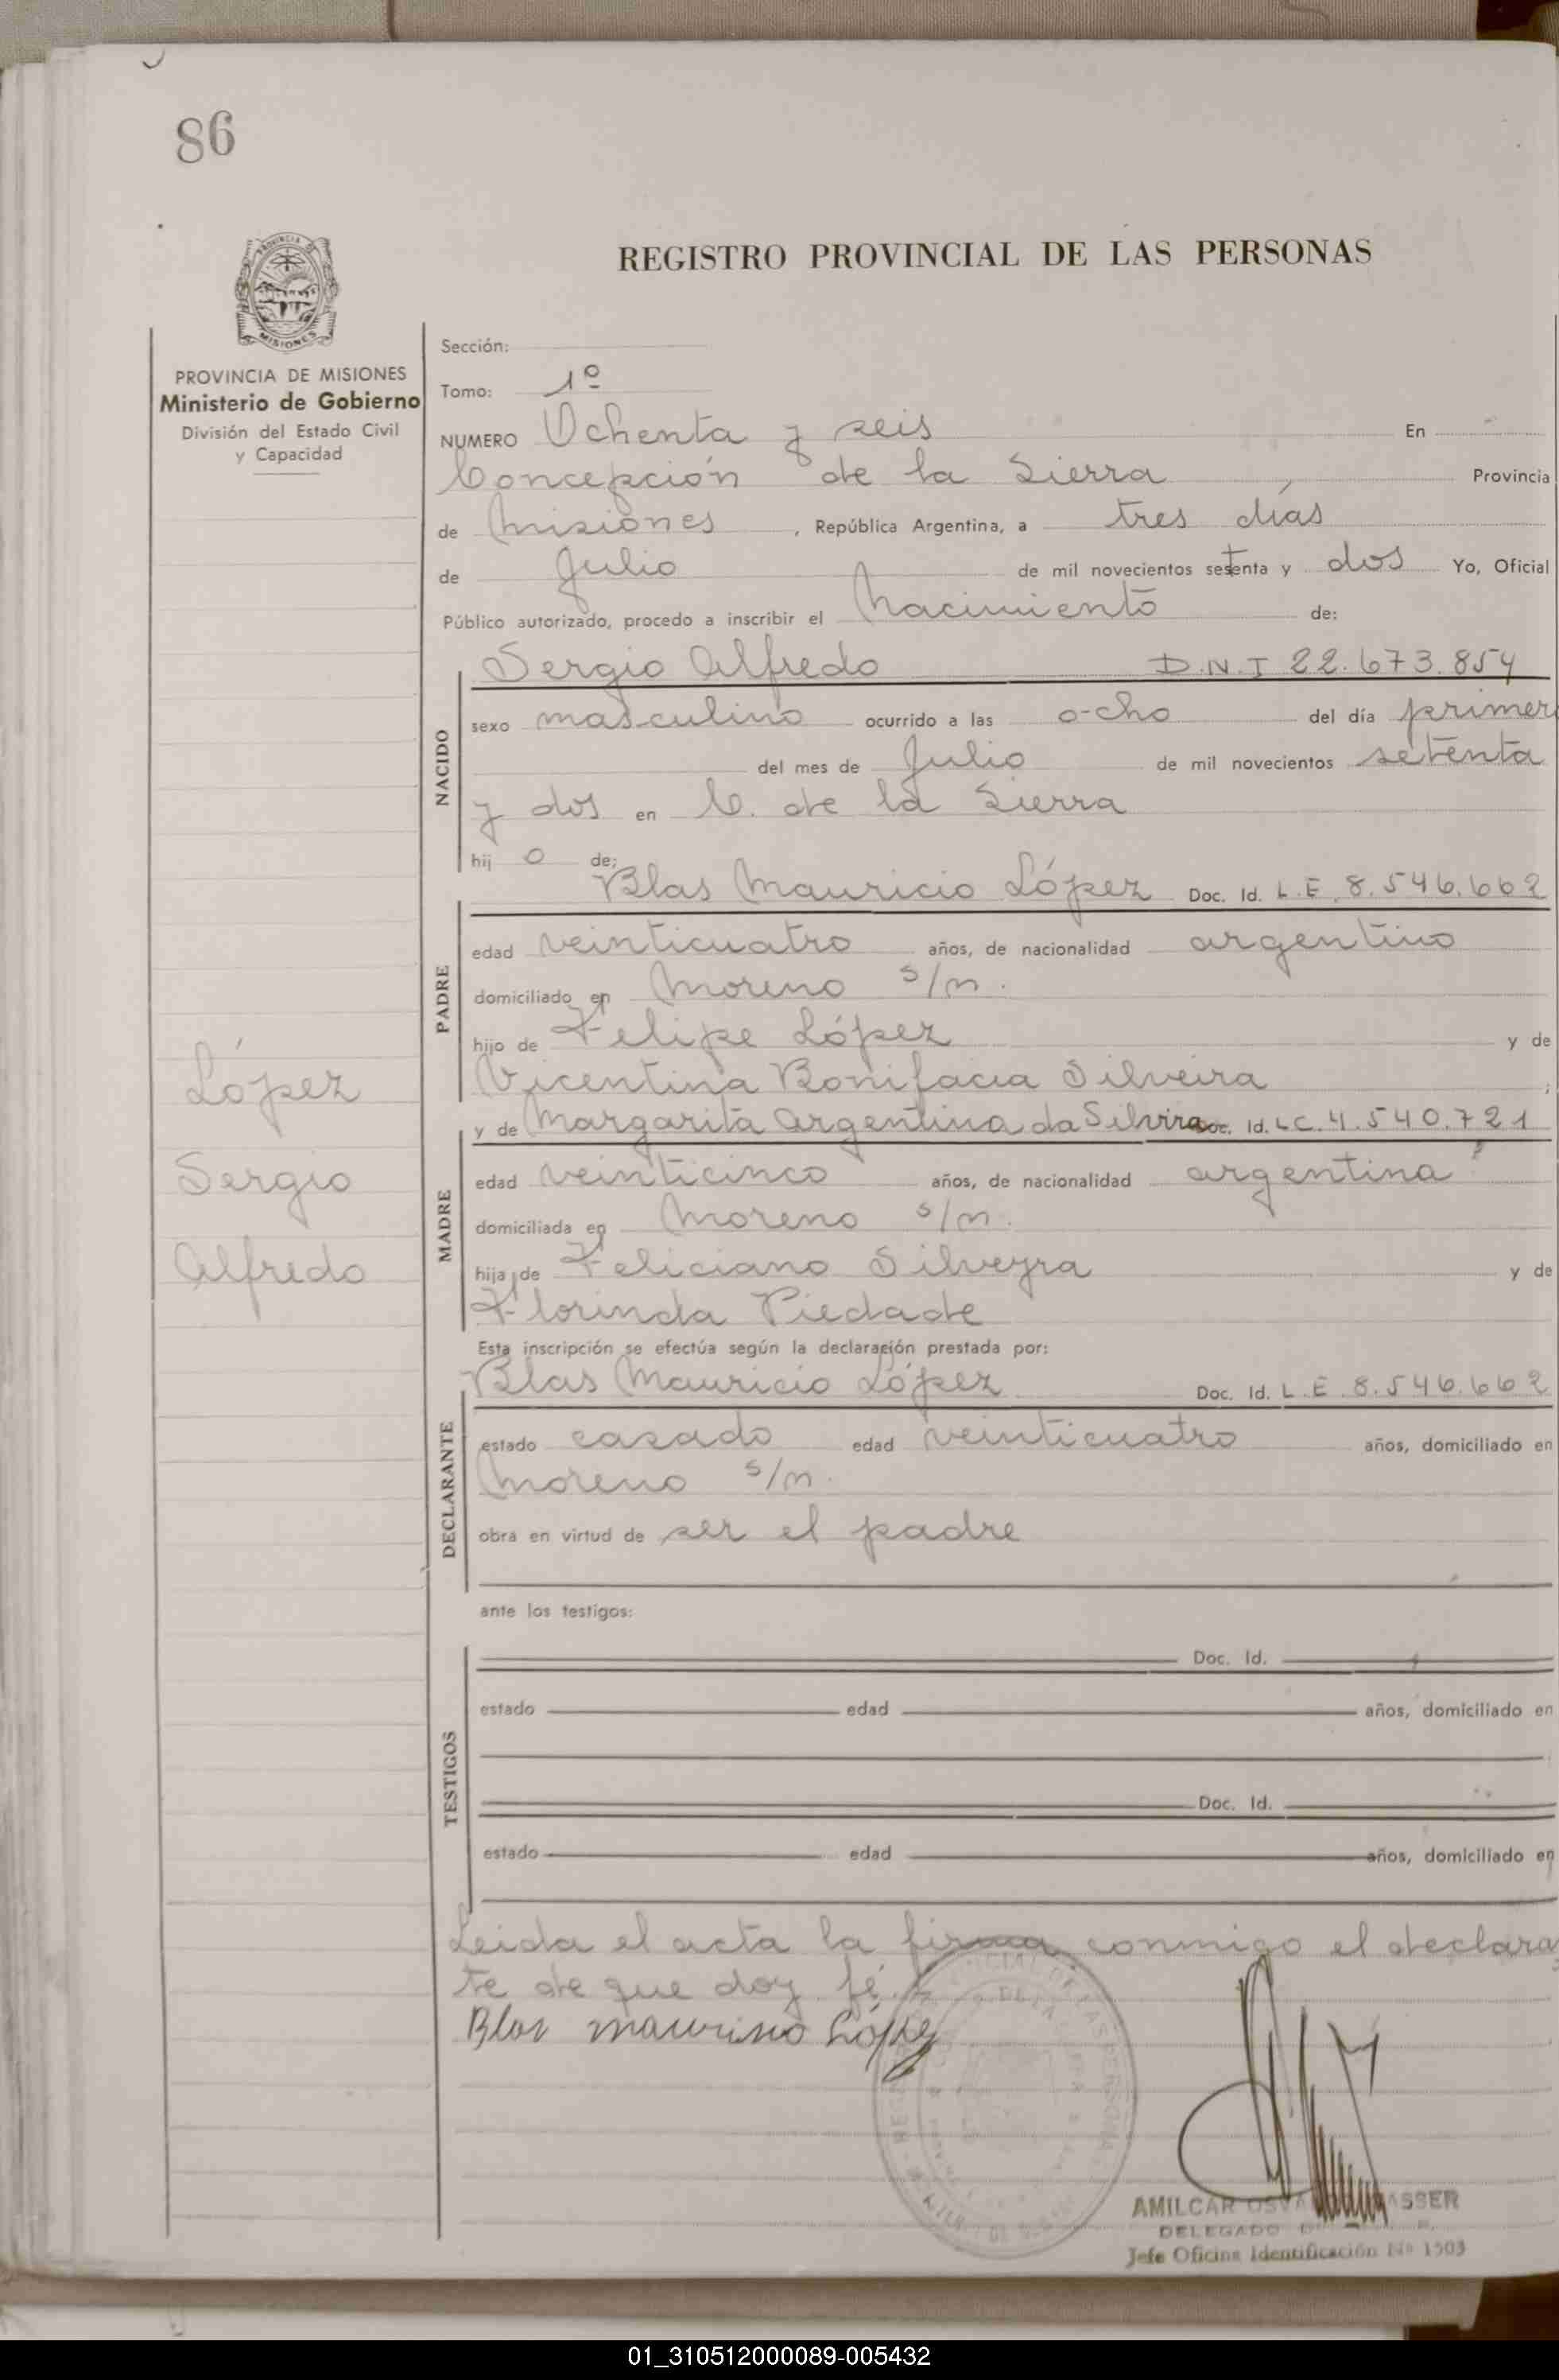 86
REGISTRO PROVINCIAL DE LAS PERSONAS
PROVINCIA DE MISIONES
Ministerio de Gobierno
División del Estado Civil
y Capacidad
López
Sergio
Alfredo
Sección:
Tomo: 1º
NUMERO Ochenta y seis En
Concepción de la Sierra Provincia
de Misiones , República Argentina, a tres días
de Julio de mil novecientos setenta y dos Yo, Oficial
Público autorizado, procedo a inscribir el Nacimiento de:
NACIDO
Sergio Alfredo D.N.I 22.673.854
sexo masculino ocurrido a las ocho del día primero
del mes de Julio de mil novecientos setenta
y dos en C. de la Sierra
hij o de:
PADRE
Blas Mauricio López Doc. Id. L.E 8.546.662
edad veinticuatro años, de nacionalidad argentino
domiciliado en Moreno s/n.
hijo de Felipe López y de
Vicentina Bonifacia Silveira ;
MADRE
y de Margarita Argentina da Silvira Doc. Id. L.C. 4.540.721
edad veinticinco años, de nacionalidad argentina
domiciliada en Moreno s/n.
hija de Feliciano Silveyra y de
Florinda Piedade
Esta inscripción se efectúa según la declaración prestada por:
DECLARANTE
Blas Mauricio López Doc. Id. L.E 8.546.662
estado casado edad veinticuatro años, domiciliado en
Moreno s/n.
obra en virtud de ser el padre
ante los testigos:
TESTIGOS
Doc. Id.
estado edad años, domiciliado en
Doc. Id.
estado edad años, domiciliado en
Leida el acta la firma conmigo el declaran
te de que doy fé.
Blas Mauricio López
AMILCAR
DELEGADO
Jefe Oficina Identificación Nº 1503
01_310512000089-005432